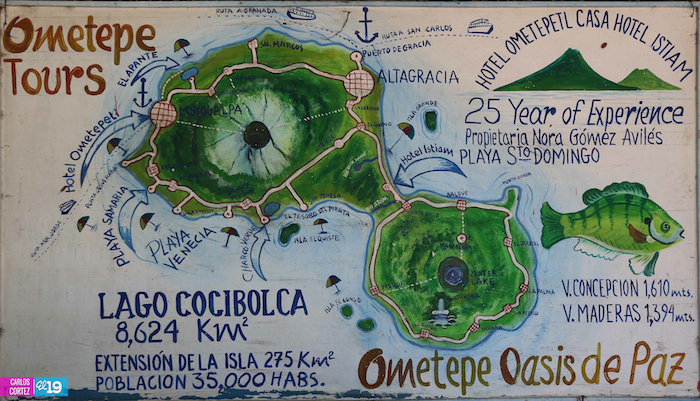 Ometepe
Tours
RUTA A GRANADA
RUTA A SAN CARLOS
PUERTO DE GRACIA
SN. MARCOS
EL APANTE
MOYOGALPA
ALTAGRACIA
HOTEL OMETEPETL CASA HOTEL ISTIAM
25 Year of Experience
Propietaria Nora Gómez Avilés
PLAYA STO DOMINGO
ISLA GRANDE
Hotel Ometepetl
Hotel Istiam
PLAYA SAMARIA
PLAYA
VENECIA
CHARCO VERDE
EL TESORO DEL PIRATA
ISLA EL QUISTE
BALGUE
ISLA EL CONGO
LA PALMA
LAGO COCIBOLCA
8,624 Km²
EXTENSIÓN DE LA ISLA 275 Km²
POBLACION 35,000 HABS.
V. CONCEPCION 1,610 mts.
V. MADERAS 1,394 mts.
Ometepe Oasis de Paz
CARLOS
CORTEZ
el 19